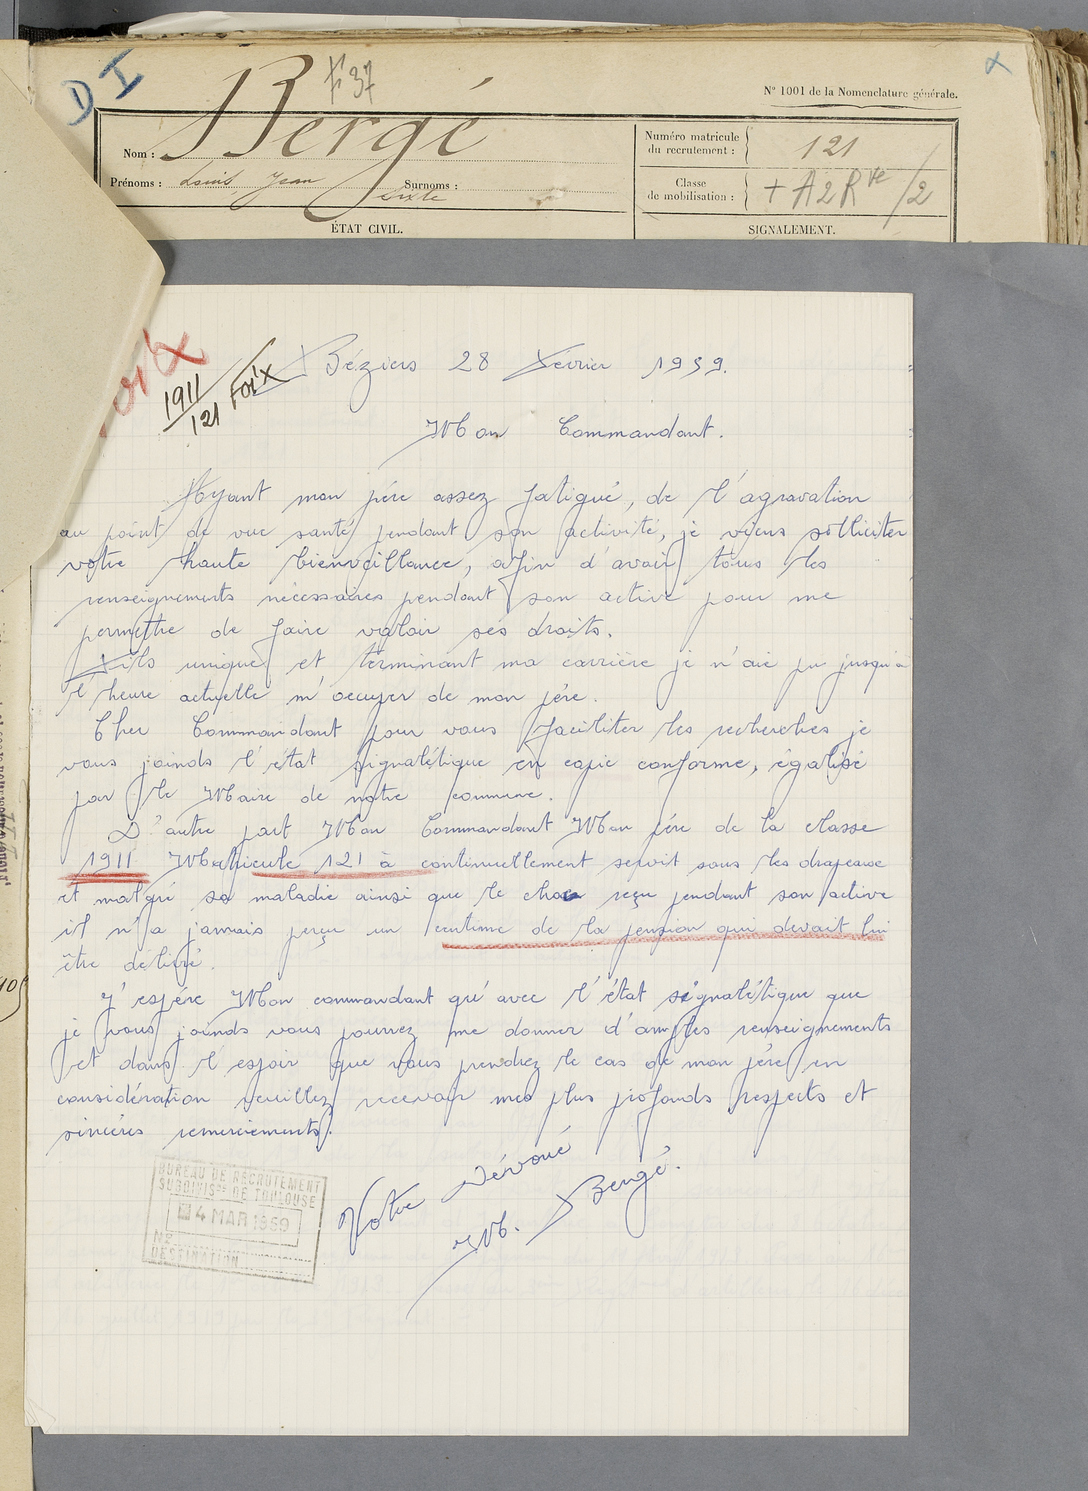 DI
Bergé
37
N° 1001 de la Nomenclature générale.
Nom :
Numéro matricule
du recrutement :
121
Prénoms : Louis Jean Sixte
Surnoms :
Classe
de mobilisation :
+ A2R ve /2
ÉTAT CIVIL.
SIGNALEMENT.
1911
121 Foix
Béziers 28 Février 1959.
Mon Commandant.
Ayant mon père assez fatigué, de l'agravation
au point de vue santé pendant son activité, je viens solliciter
votre haute bienveillance, afin d'avoir tous les
renseignements nécessaires pendant son active pour me
permettre de faire valoir ses droits.
Fils unique et terminant ma carrière je n'aie pu jusqu'à
l'heure actuelle m'occuper de mon père.
Cher Commandant pour vous faciliter les recherches je
vous joinds l'état signalétique en copie conforme, égalisé
par le Maire de notre commune.
D'autre part Mon Commandant Mon père de la classe
1911 Matricule 121 à continuellement servit sous les drapeaux
et malgré sa maladie ainsi que le choc reçu pendant son active
il n'a jamais perçu un centime de la pension qui devait lui
être délivré.
J'espére Mon commandant qu'avec l'état signalétique que
je vous joinds vous pourrez me donner d'amples renseignements
et dans l'espoir que vous prendrez le cas de mon père en
considération veuillez recevoir mes plus profonds respects et
sincères remerciements.
Votre Dévoué
M. Bergé.
BUREAU DE RECRUTEMENT
SUBDIVISon DE TOULOUSE
4 MAR 1959
N°
DESTINATION